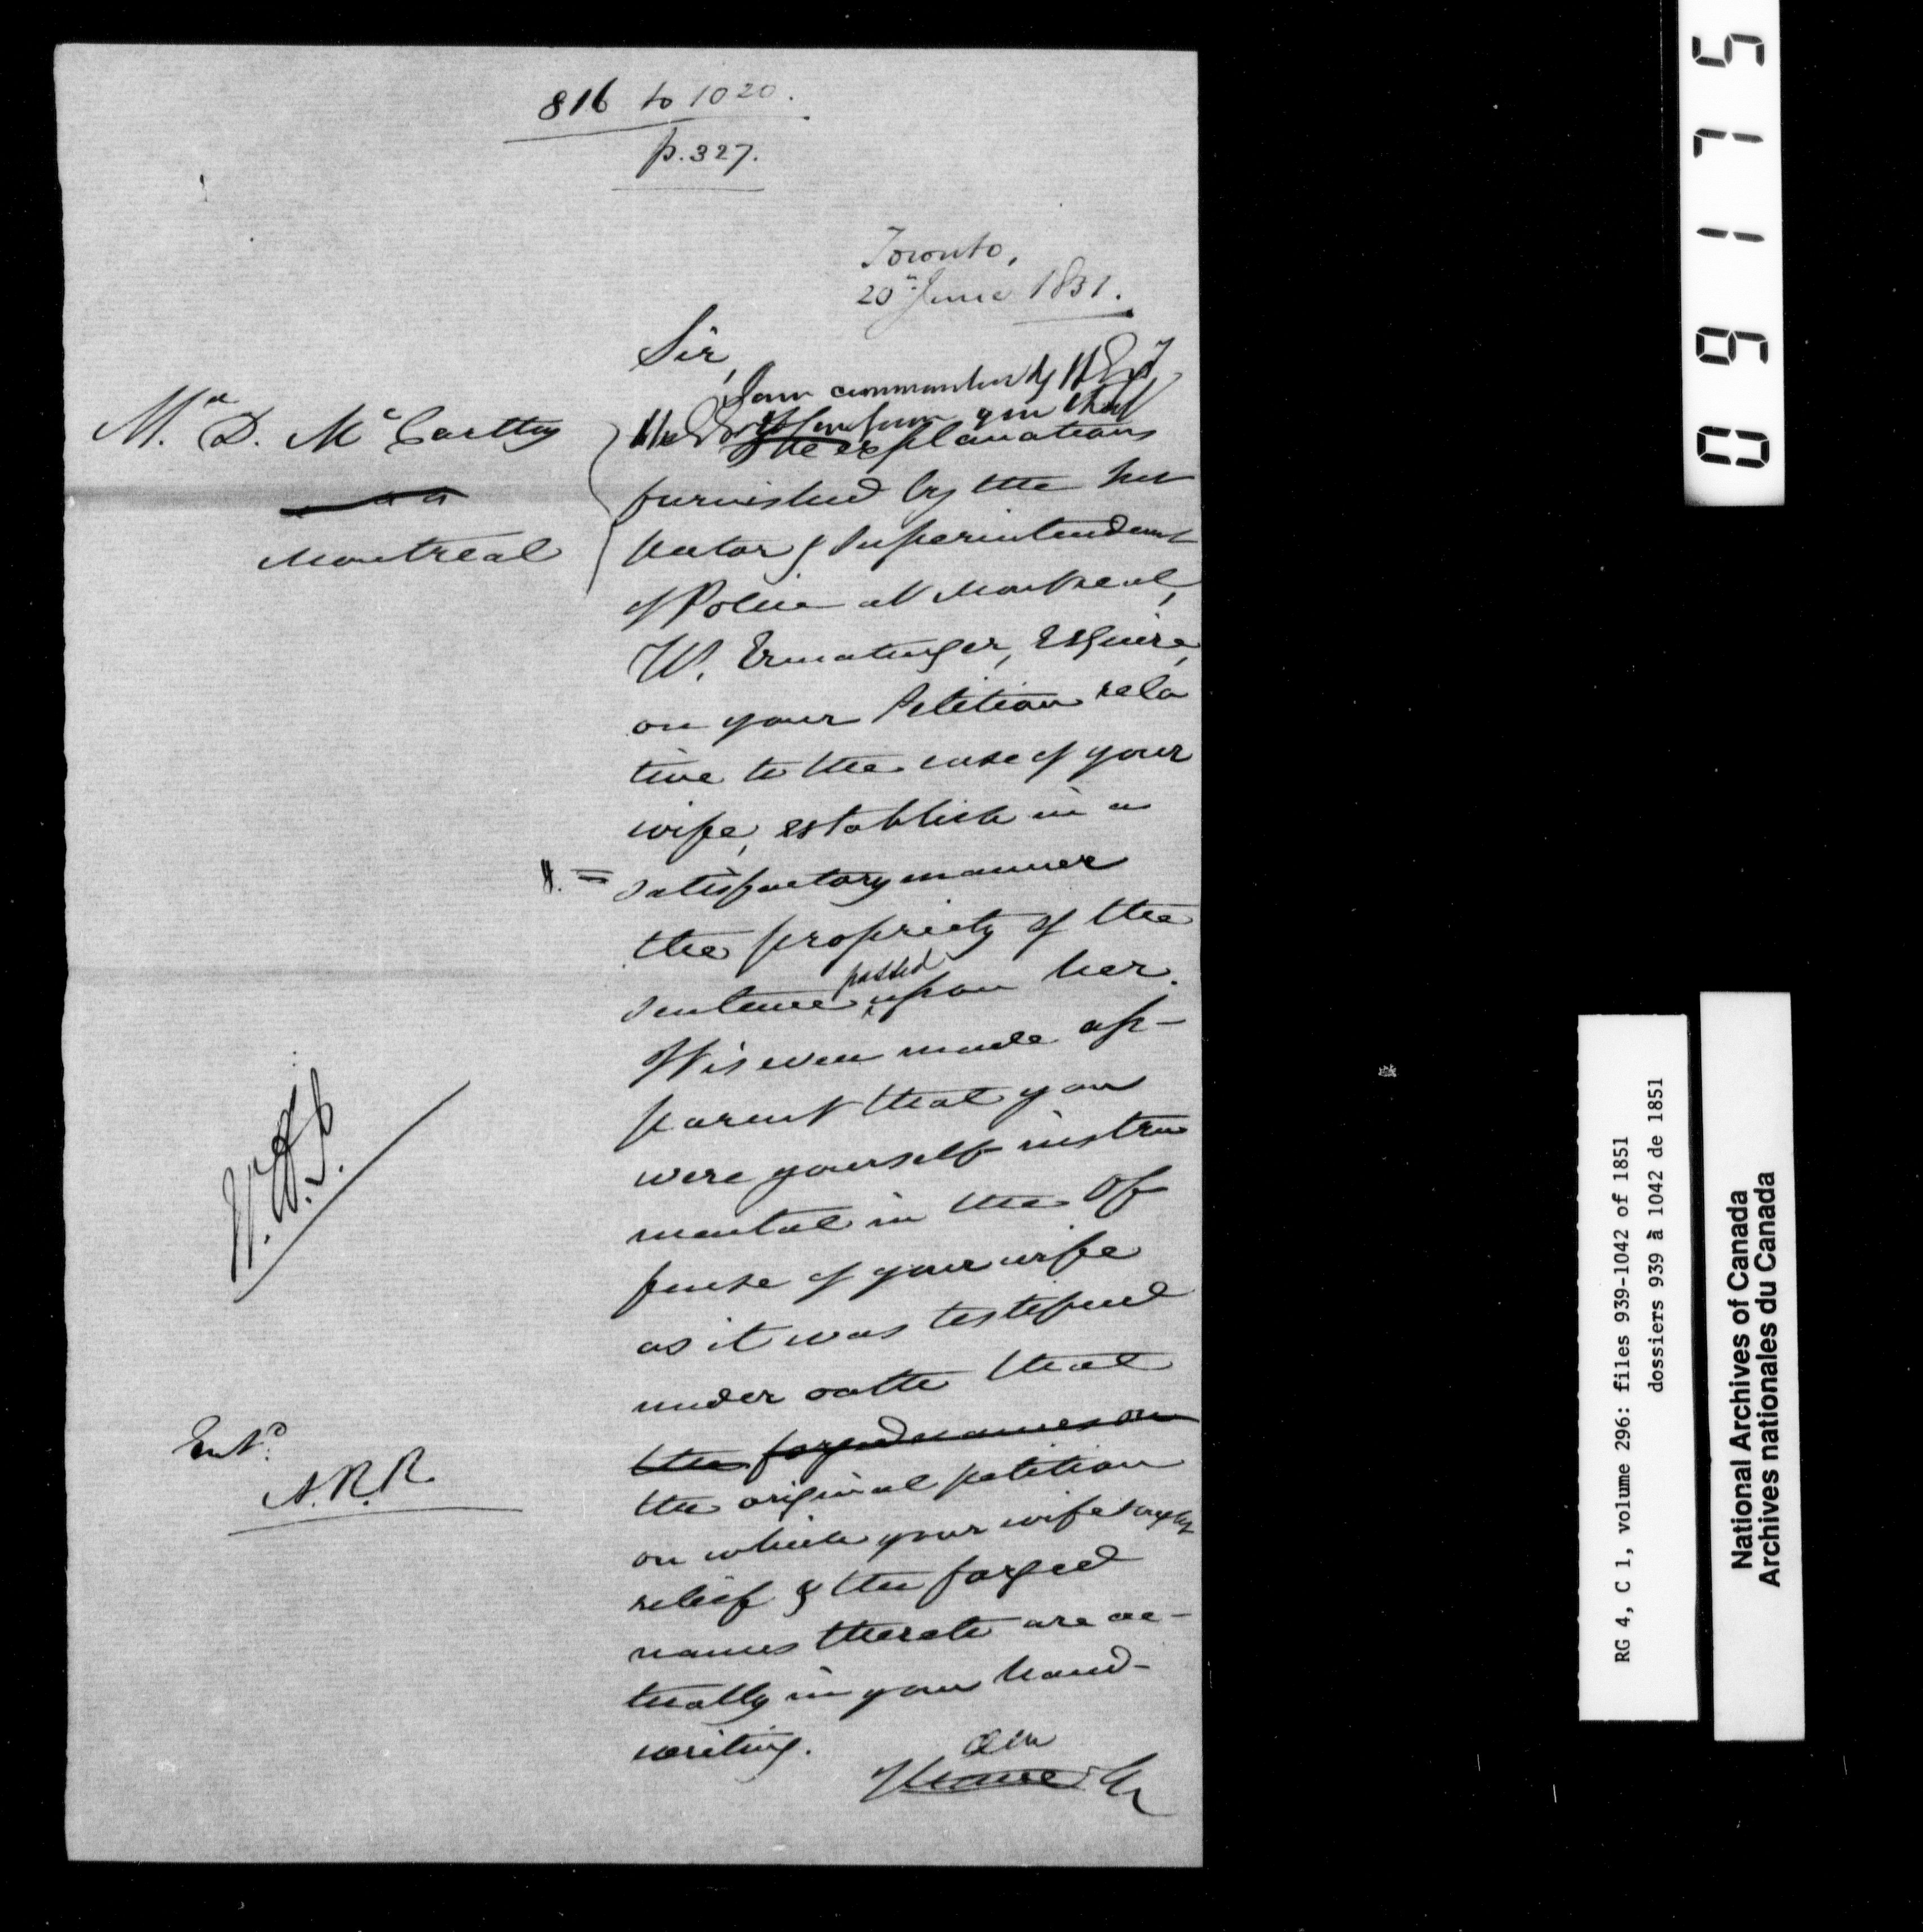 816 to 1020.
p. 327.
Toronto,
20th June 1851.
Sir,
Mr. D. McCartty
Montreal
I am commanded by H Exy
the Gor Gl to inform you that
the explanations
furnished by the Ins
pector & Superintendent
of Police at Montreal,
W. Ermatinger, Esquire,
on your Petition rela
tive to the case of your
wife, establish in a
satisfactory manner
the propriety of the
sentence passed upon her.
It is even made ap-
parent that you
were yourself instru
mental in the Of
fense of your wife
as it was testified
under oath that
the forged names on
the original petition
on which your wife sought
relief & the forged
names thereto are ac-
tually in your hand-
writing.
Entd.
A.R.R.
091175
RG 4, C 1, volume 296: files 939-1042 of 1851
dossiers 939 à 1042 de 1851
National Archives of Canada
Archives nationales du Canada